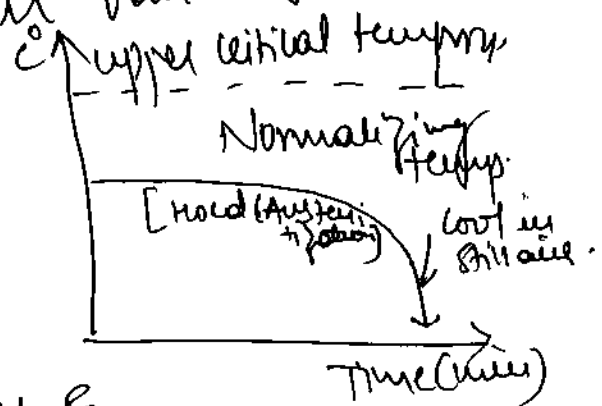 °C
upper critical temp.
Normalizing
temp.
[Hold (Austeni
tization)
cool in
still air.
Time (min)